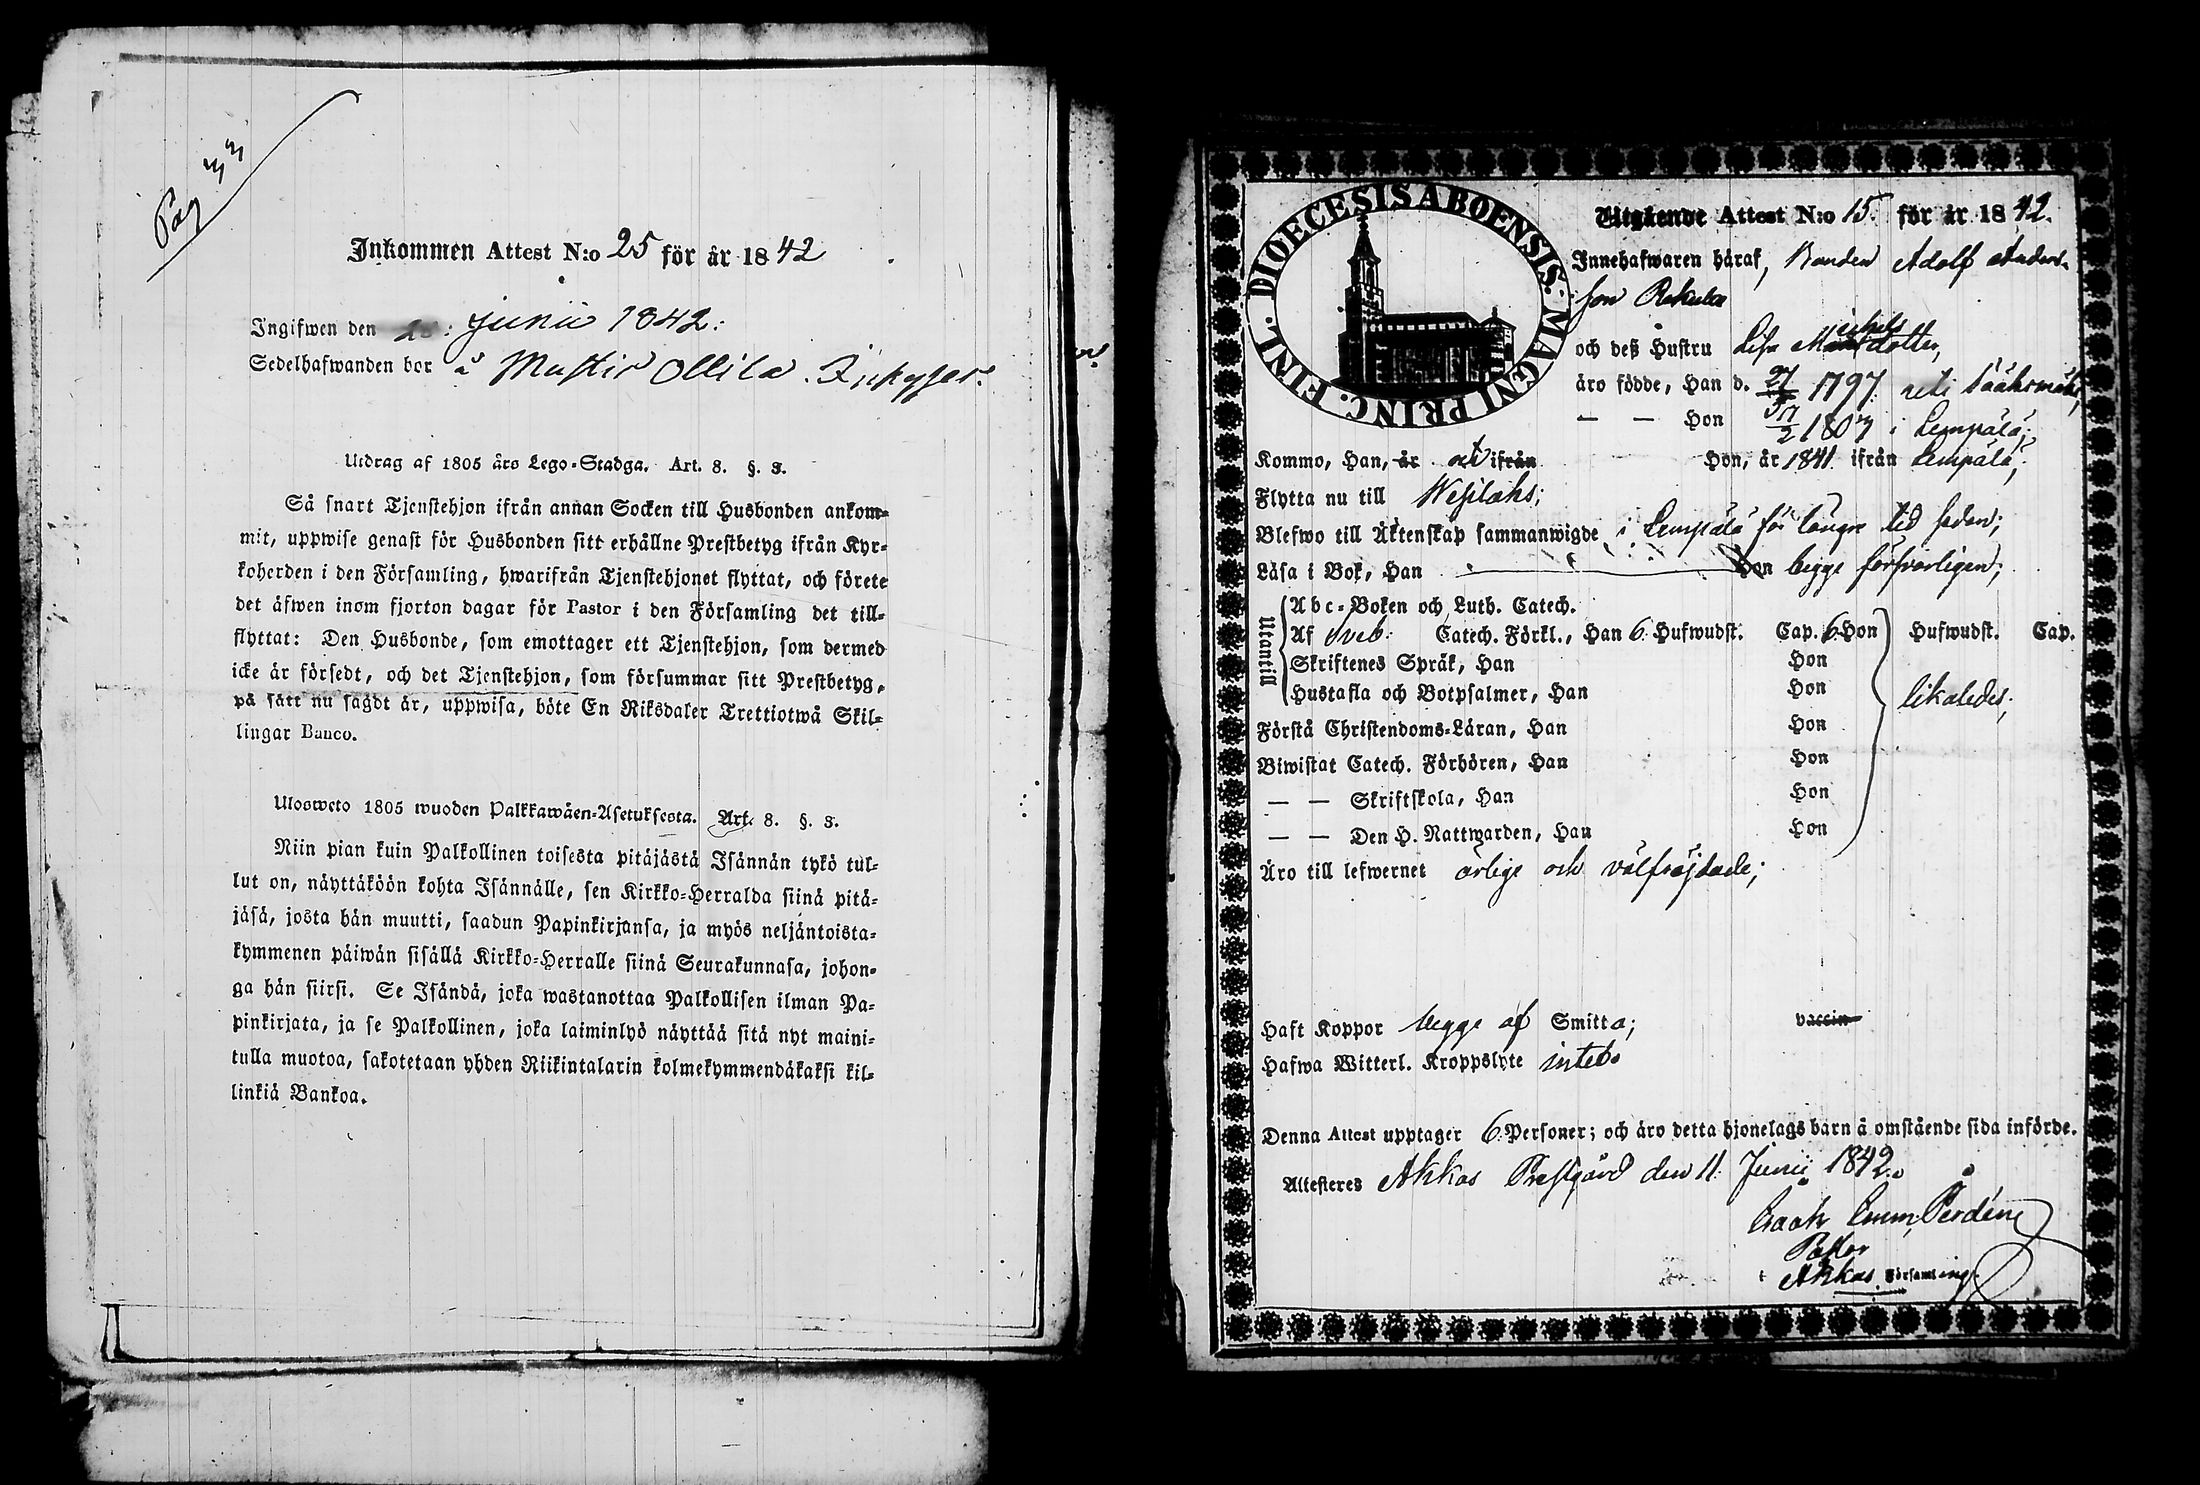 Pag 33
Inkommen Attest N:o 25 för år 1842
Ingifwen den Junii 1842:
Sedelhafwanden bor å Ollila
Utdrag af 1805 års Lego-Stadga. Art. 8. §. 3.
Så snart Tjenstehjon ifrån annan Socken till Husbonden ankom-
mit, uppwise genast för Husbonden sitt erhållne Prestbetyg ifrån Kyr-
koherden i den Församling, hwarifrån Tjenstehjonet flyttat, och förete
det äfwen inom fjorton dagar för Pastor i den Församling det till-
flyttat: Den Husbonde, som emottager ett Tjenstehjon, som dermed
icke är försedt, och det Tjenstehjon, som försummar sitt Prestbetyg,
på sätt nu sagdt är, uppwisa, böte En Riksdaler Trettiotwå Skil-
lingar Banco.
Ulosweto 1805 wuoden Palkkawäen-Asetuksesta. Art. 8. §. 3.
Niin pian kuin Palkollinen toisesta pitäjästä Isännän tykö tul-
lut on, näyttäköön kohta Isännälle, sen Kirkko-Herralda siinä pitä-
jäsä, josta hän muutti, saadun Papinkirjansa, ja myös neljäntoista-
kymmenen päiwän sisällä Kirkko-Herralle siinä Seurakunnasa, johon-
ga hän siirsi. Se Isändä, joka wastanottaa Palkollisen ilman Pa-
pinkirjata, ja se Palkollinen, joka laiminlyö näyttää sitä nyt maini-
tulla muotoa, sakotetaan yhden Riikintalarin kolmekymmendäkaksi kil-
linkiä Bankoa.
DIOECESIS ABOENSIS. MAGNI PRINC. FINL.
Utgående Attest N:o 15. för år 1842.
Innehafwaren häraf, Bonden Adolf Anders-
son
och deß Hustru Lisa Michelsdotter,
äro födde, Han d. 27 1797
— — Hon 2 1807 i Lempälä;
Kommo, Han, är ifrån Hon, år 1841 ifrån Lempälä;
Flytta nu till Wesilaks;
Blefwo till Äktenskap sammanwigde i Lempälä för längre tid sedan;
Läsa i Bok, Han Hon begge försvarligen;
Utantill
Abc-Boken och Luth. Catech.
Af Sveb. Catech. Förkl., Han 6 Hufwudst. Cap. 6 Hon Hufwudst. Cap.
Skriftenes Språk, Han Hon
Hustafla och Botpsalmer, Han Hon likaledes;
Förstå Christendoms-Läran, Han Hon
Biwistat Catech. Förhören, Han Hon
— — Skriftskola, Han Hon
— — Den H. Nattwarden, Han Hon
Äro till lefwernet ärlige och välfräjdade;
Haft Koppor begge af Smitta; vaccin
Hafwa Witterl. Kroppslyte intet.
Denna Attest upptager 6 Personer; och äro detta hjonelags barn å omstående sida införde.
Attesteres Akkas Prestgård den 11 Junii 1842.
Isaak Emm.
Pastor
i Akkas Församling.